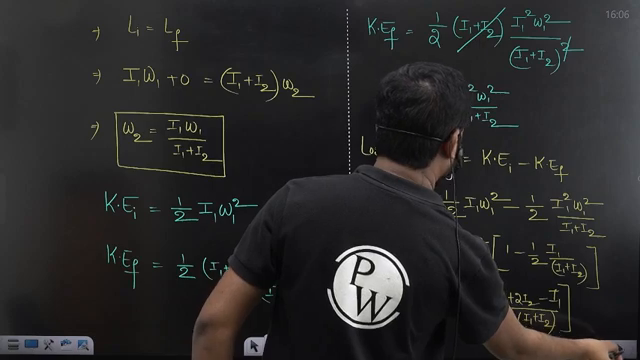 ⇒ L₁ = L_f
⇒ I₁W₁ + 0 = (I₁+I₂) ω₂
⇒ ω₂ = I₁W₁ / I₁+I₂
K·E_i = 1/2 I₁ω₁²
K·E_f = 1/2 (I₁
K·E_f = 1/2 (I₁+I₂) I₁²ω₁² / (I₁+I₂)²
²ω₁² / I₁+I₂
Lo = K·E_i − K·E_f
1/2 I₁ω₁² − 1/2 I₁²ω₁² / I₁+I₂
[1 − 1/2 I₁ / (I₁+I₂)]
+2I₂ − I₁ / (I₁+I₂)]
PW
16:06